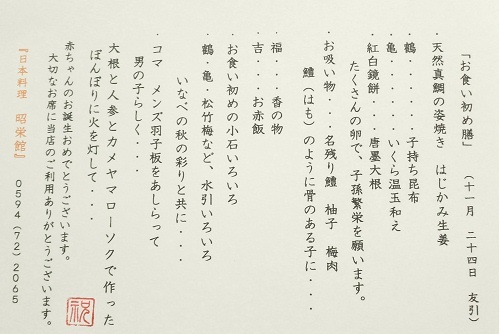 「お食い初め膳」　（十一月　二十四日　友引）
・天然真鯛の姿焼き　はじかみ生姜
・鶴・・・・・・子持ち昆布
・亀・・・・・・いくら温玉和え
・紅白鏡餅・・・・唐墨大根
たくさんの卵で、子孫繁栄を願います。
・お吸い物・・・名残り鱧　柚子　梅肉
鱧（はも）のように骨のある子に・・・・
・福・・・香の物
・吉・・・お赤飯
・お食い初めの小石いろいろ
いなべの秋の彩りと共に・・・
・鶴・亀・松竹梅など、水引いろいろ
・コマ　メンズ羽子板をあしらって
男の子らしく・・・・
大根と人参とカメヤマローソクで作った
ぼんぼりに火を灯して・・・・
赤ちゃんのお誕生おめでとうございます。
大切なお席に当店のご利用ありがとうございます。
『日本料理　昭栄館』　０５９４（７２）２０６５
祝